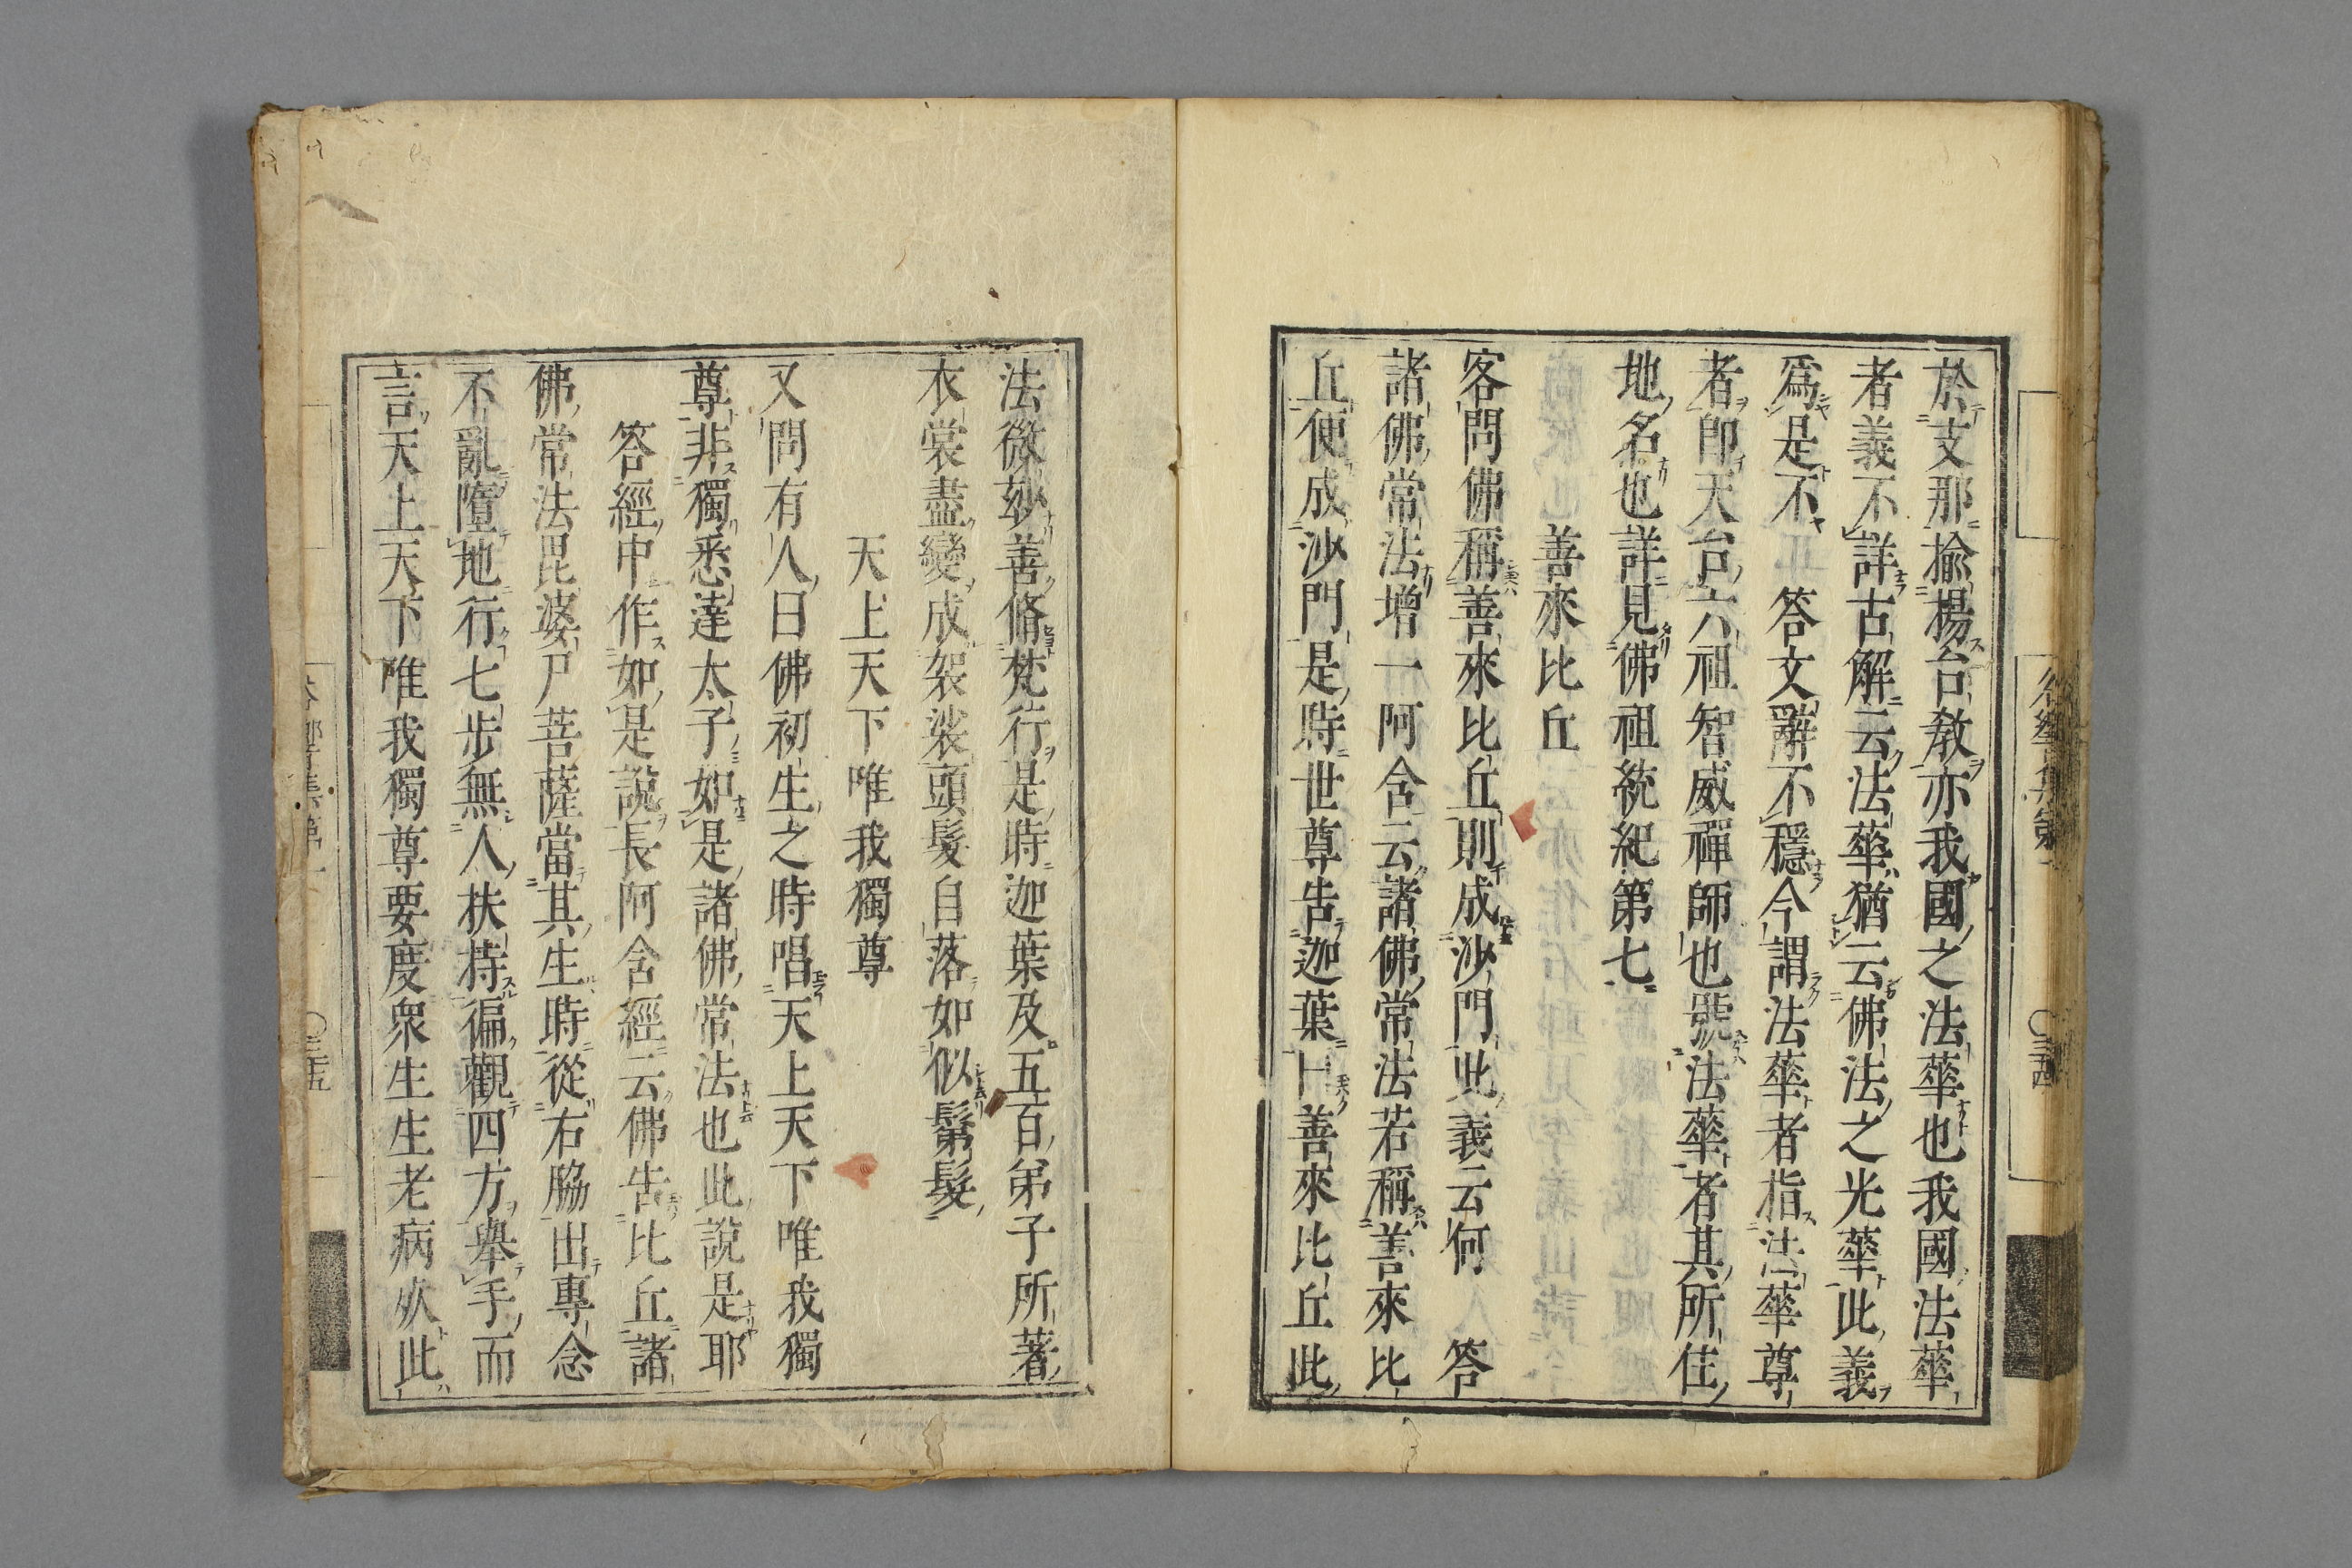 於支那揄楊台教亦我國之法華也我國法華
者義不詳古解云法華猶云佛法之光華此義
爲是不　答文辭不穩今謂法華者指法華尊
者卽天台六祖智威禪師也號法華者其所住
地名也詳見佛祖統紀第七
善來比丘
客問佛稱善來比丘則成沙門此義云何　答
諸佛常法增一阿含云諸佛常法若稱善來比
丘便成沙門是時世尊告迦葉曰善來比丘此
法微玅善脩梵行是時迦葉及五百弟子所著
衣裳盡變成袈裟頭髮自落如似鬀髮
天上天下唯我獨尊
又問有人曰佛初生之時唱天上天下唯我獨
尊非獨悉達太子如是諸佛常法也此說是耶
答經中作如是說長阿含經云佛告比丘諸
佛常法毘婆尸菩薩當其生時從右脇出專念
不亂墮地行七步無人扶持徧觀四方舉手而
言天上天下唯我獨尊要度衆生生老病死此